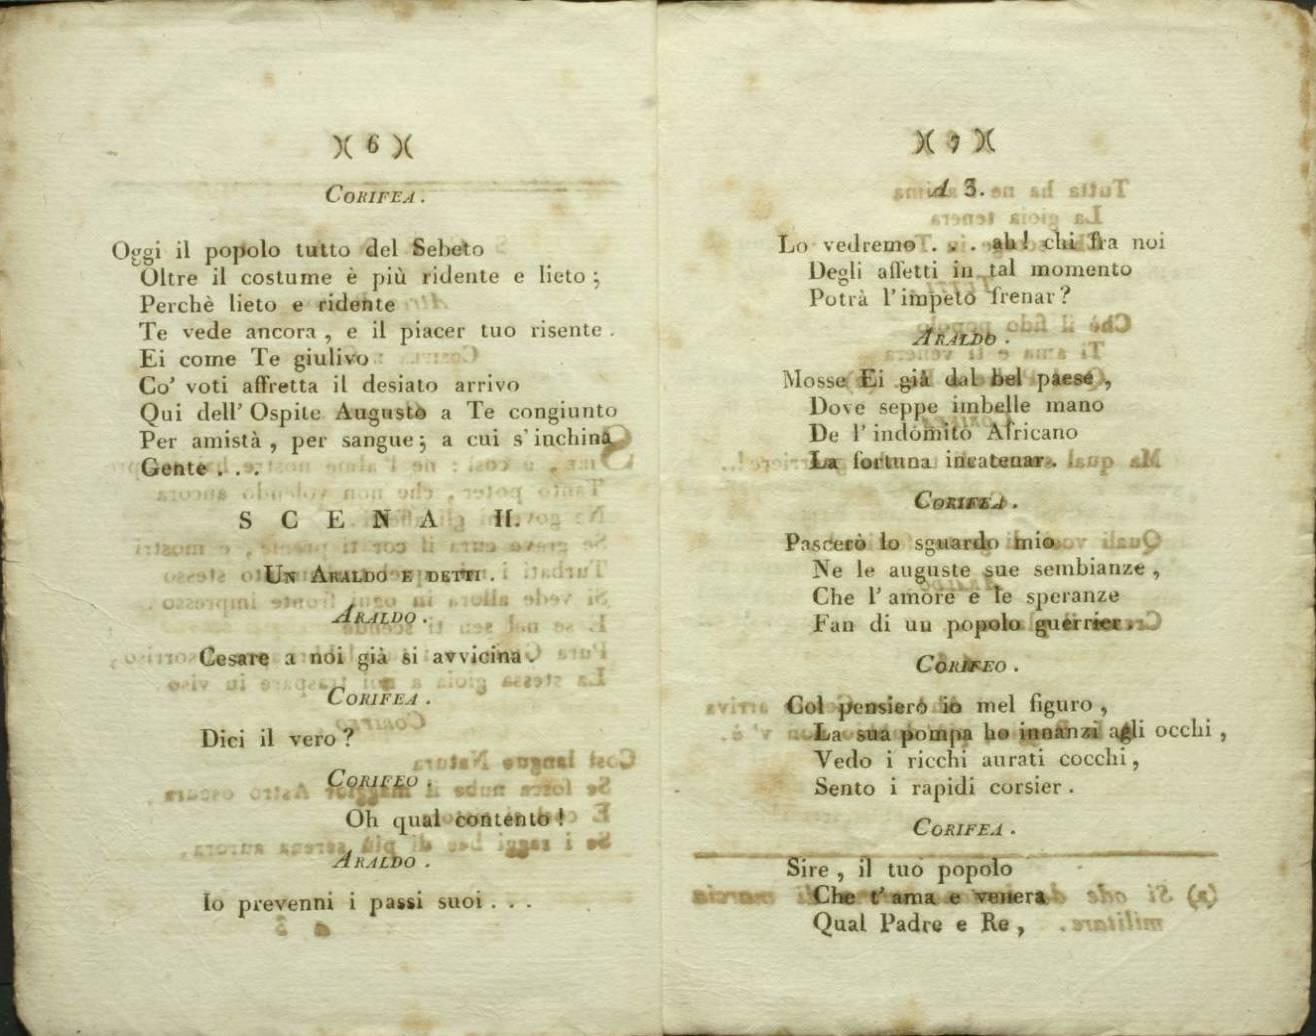 )( 6 )(
CORIFEA.
Oggi il popolo tutto del Sebeto
Oltre il costume è più ridente e lieto;
Perchè lieto e ridente
Te vede ancora, e il piacer tuo risente.
Ei come Te giulivo
Co' voti affretta il desiato arrivo
Qui dell' Ospite Augusto a Te congiunto
Per amistà, per sangue; a cui s'inchina
Gente . . .
SCENA II.
UN ARALDO E DETTI.
ARALDO.
Cesare a noi già si avvicina.
CORIFEA.
Dici il vero?
CORIFEO.
Oh qual contento!
ARALDO.
Io prevenni i passi suoi . . .
)( 7 )(
A 3.
Lo vedremo . . . ah! chi fra noi
Degli affetti in tal momento
Potrà l'impeto frenar?
ARALDO.
Mosse Ei già dal bel paese,
Dove seppe imbelle mano
De l'indomito Africano
La fortuna incatenar.
CORIFEA.
Pascerò lo sguardo mio
Ne le auguste sue sembianze,
Che l'amore e le speranze
Fan di un popolo guerrier.
CORIFEO.
Col pensiero io mel figuro,
La sua pompa ho innanzi agli occhi,
Vedo i ricchi aurati cocchi,
Sento i rapidi corsier.
CORIFEA.
Sire, il tuo popolo
Che t'ama e venera
Qual Padre e Re,